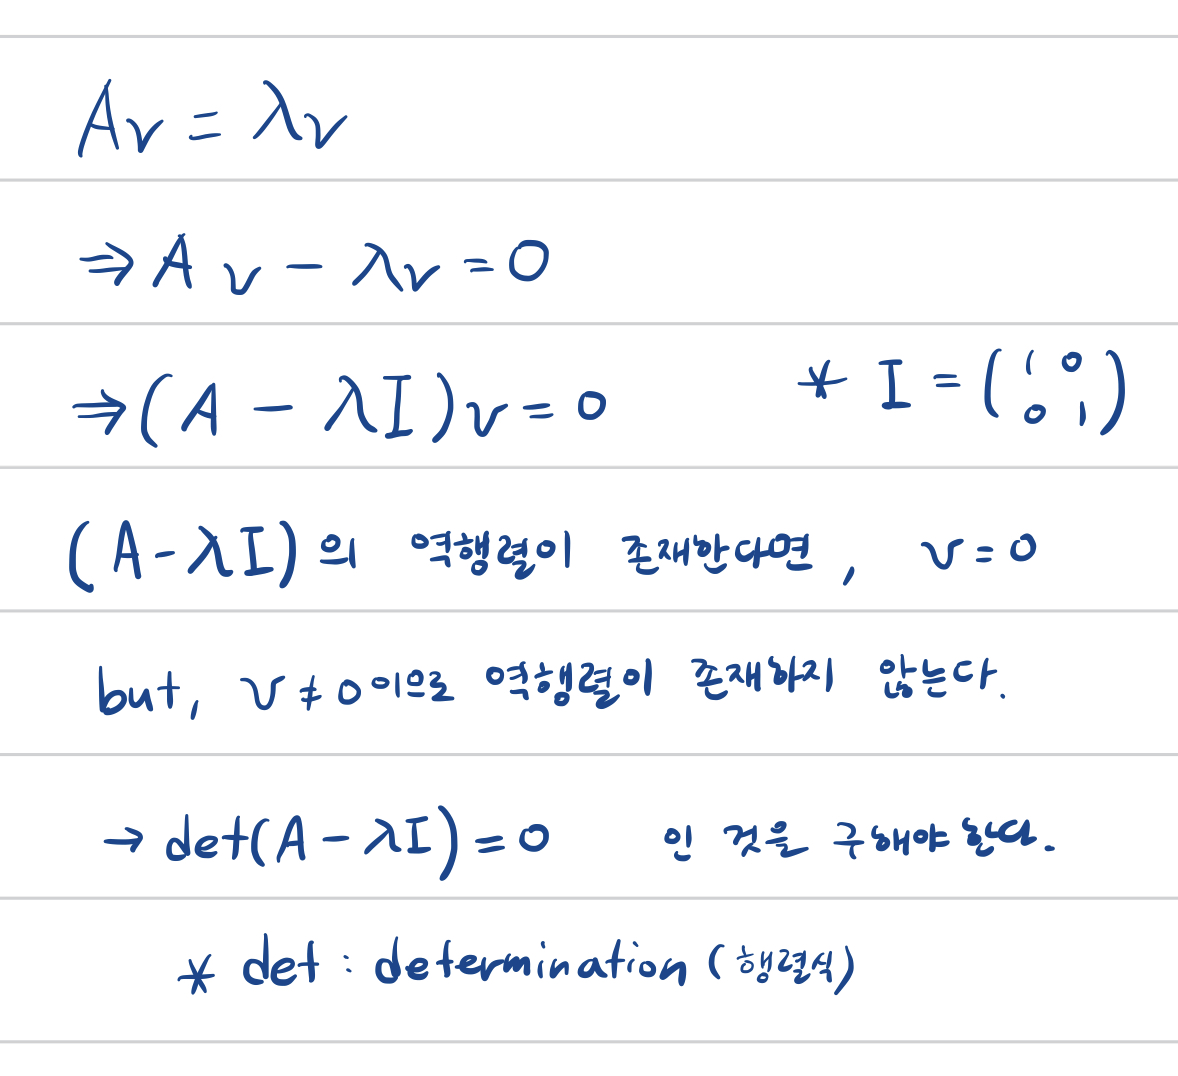 Av = λv
⇒ A v - λv = 0
⇒ (A - λI)v = 0 * I = (1 0 0 1)
(A-λI)의 역행렬이 존재한다면, v = 0
but, v ≠ 0 이므로 역행렬이 존재하지 않는다.
→ det(A - λI) = 0 인 것을 구해야 한다.
* det : determination (행렬식)